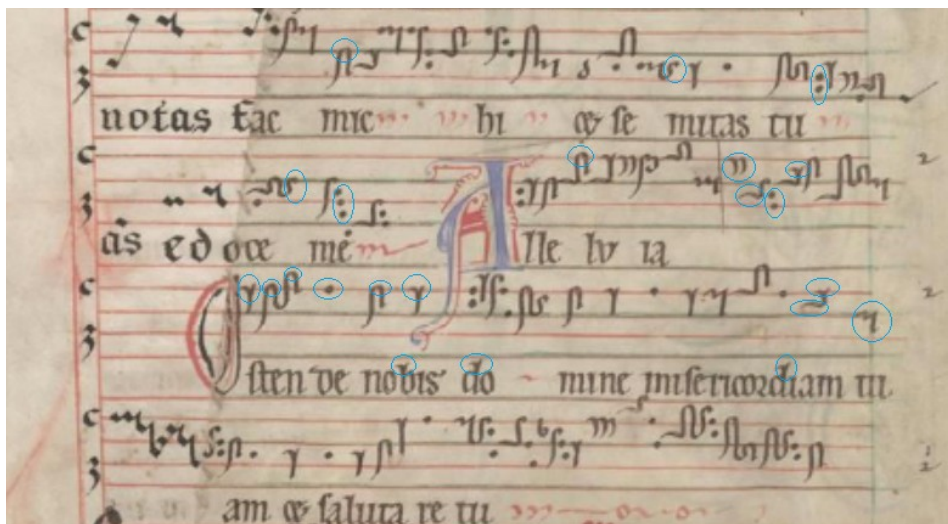 notas fac mic hi & se mitas tu
as edoce me Alle lu ia
Osten de nobis do mine misericordiam tu
am & saluta re tu